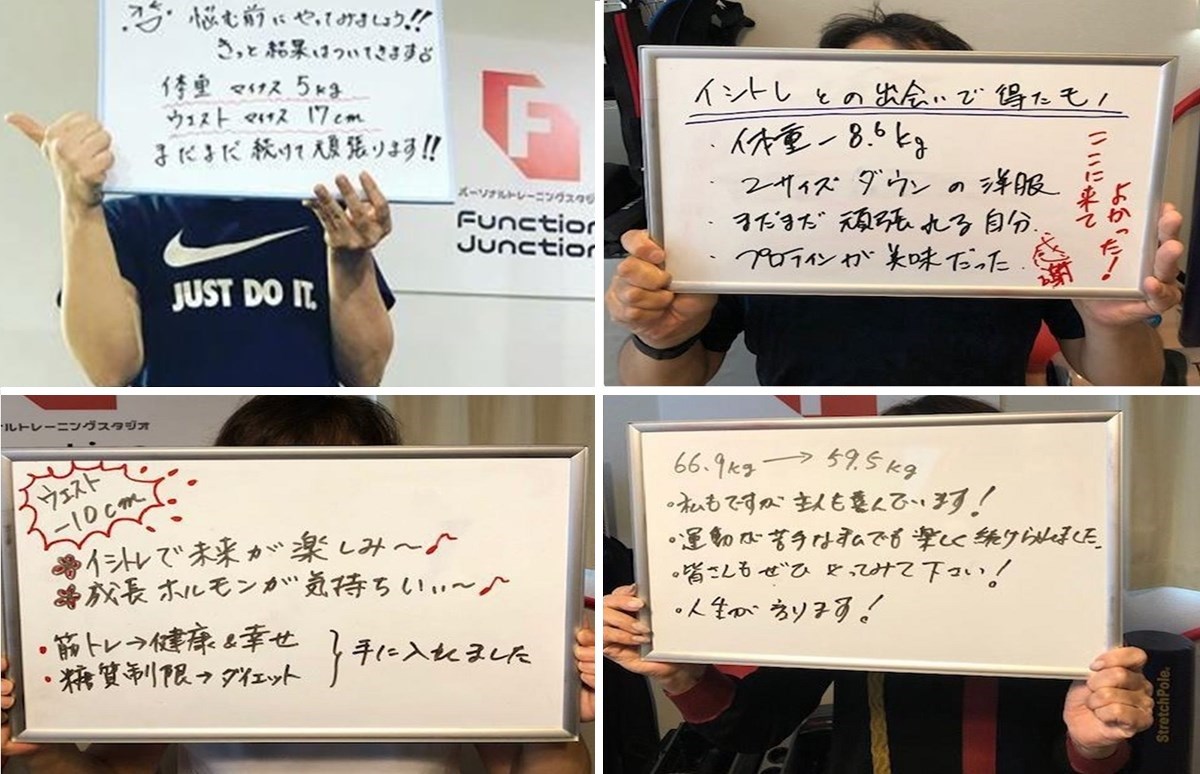 悩む前にやってみましょう!!
きっと結果はついてきます
体重 マイナス 5kg
ウエスト マイナス 17cm
まだまだ続けて頑張ります!!
パーソナルトレーニングスタジオ
Function
Junction
JUST DO IT.
イシトレとの出会いで得たモノ
・体重-8.6kg
・2サイズダウンの洋服
・まだまだ頑張れる自分.
・プロテインが美味だった.
ここに来て
よかった!
感謝
ルトレーニングスタジオ
ウエスト
-10cm
イシトレで未来が楽しみ～♪
成長ホルモンが気持ちいい～♪
・筋トレ→健康&幸せ
・糖質制限→ダイエット
手に入れました
66.9kg → 59.5kg
・私もですが主人も喜んでいます!
・運動が苦手な私でも楽しく続けられました.
・皆さんもぜひやってみて下さい!
・人生が変ります!
StretchPole.